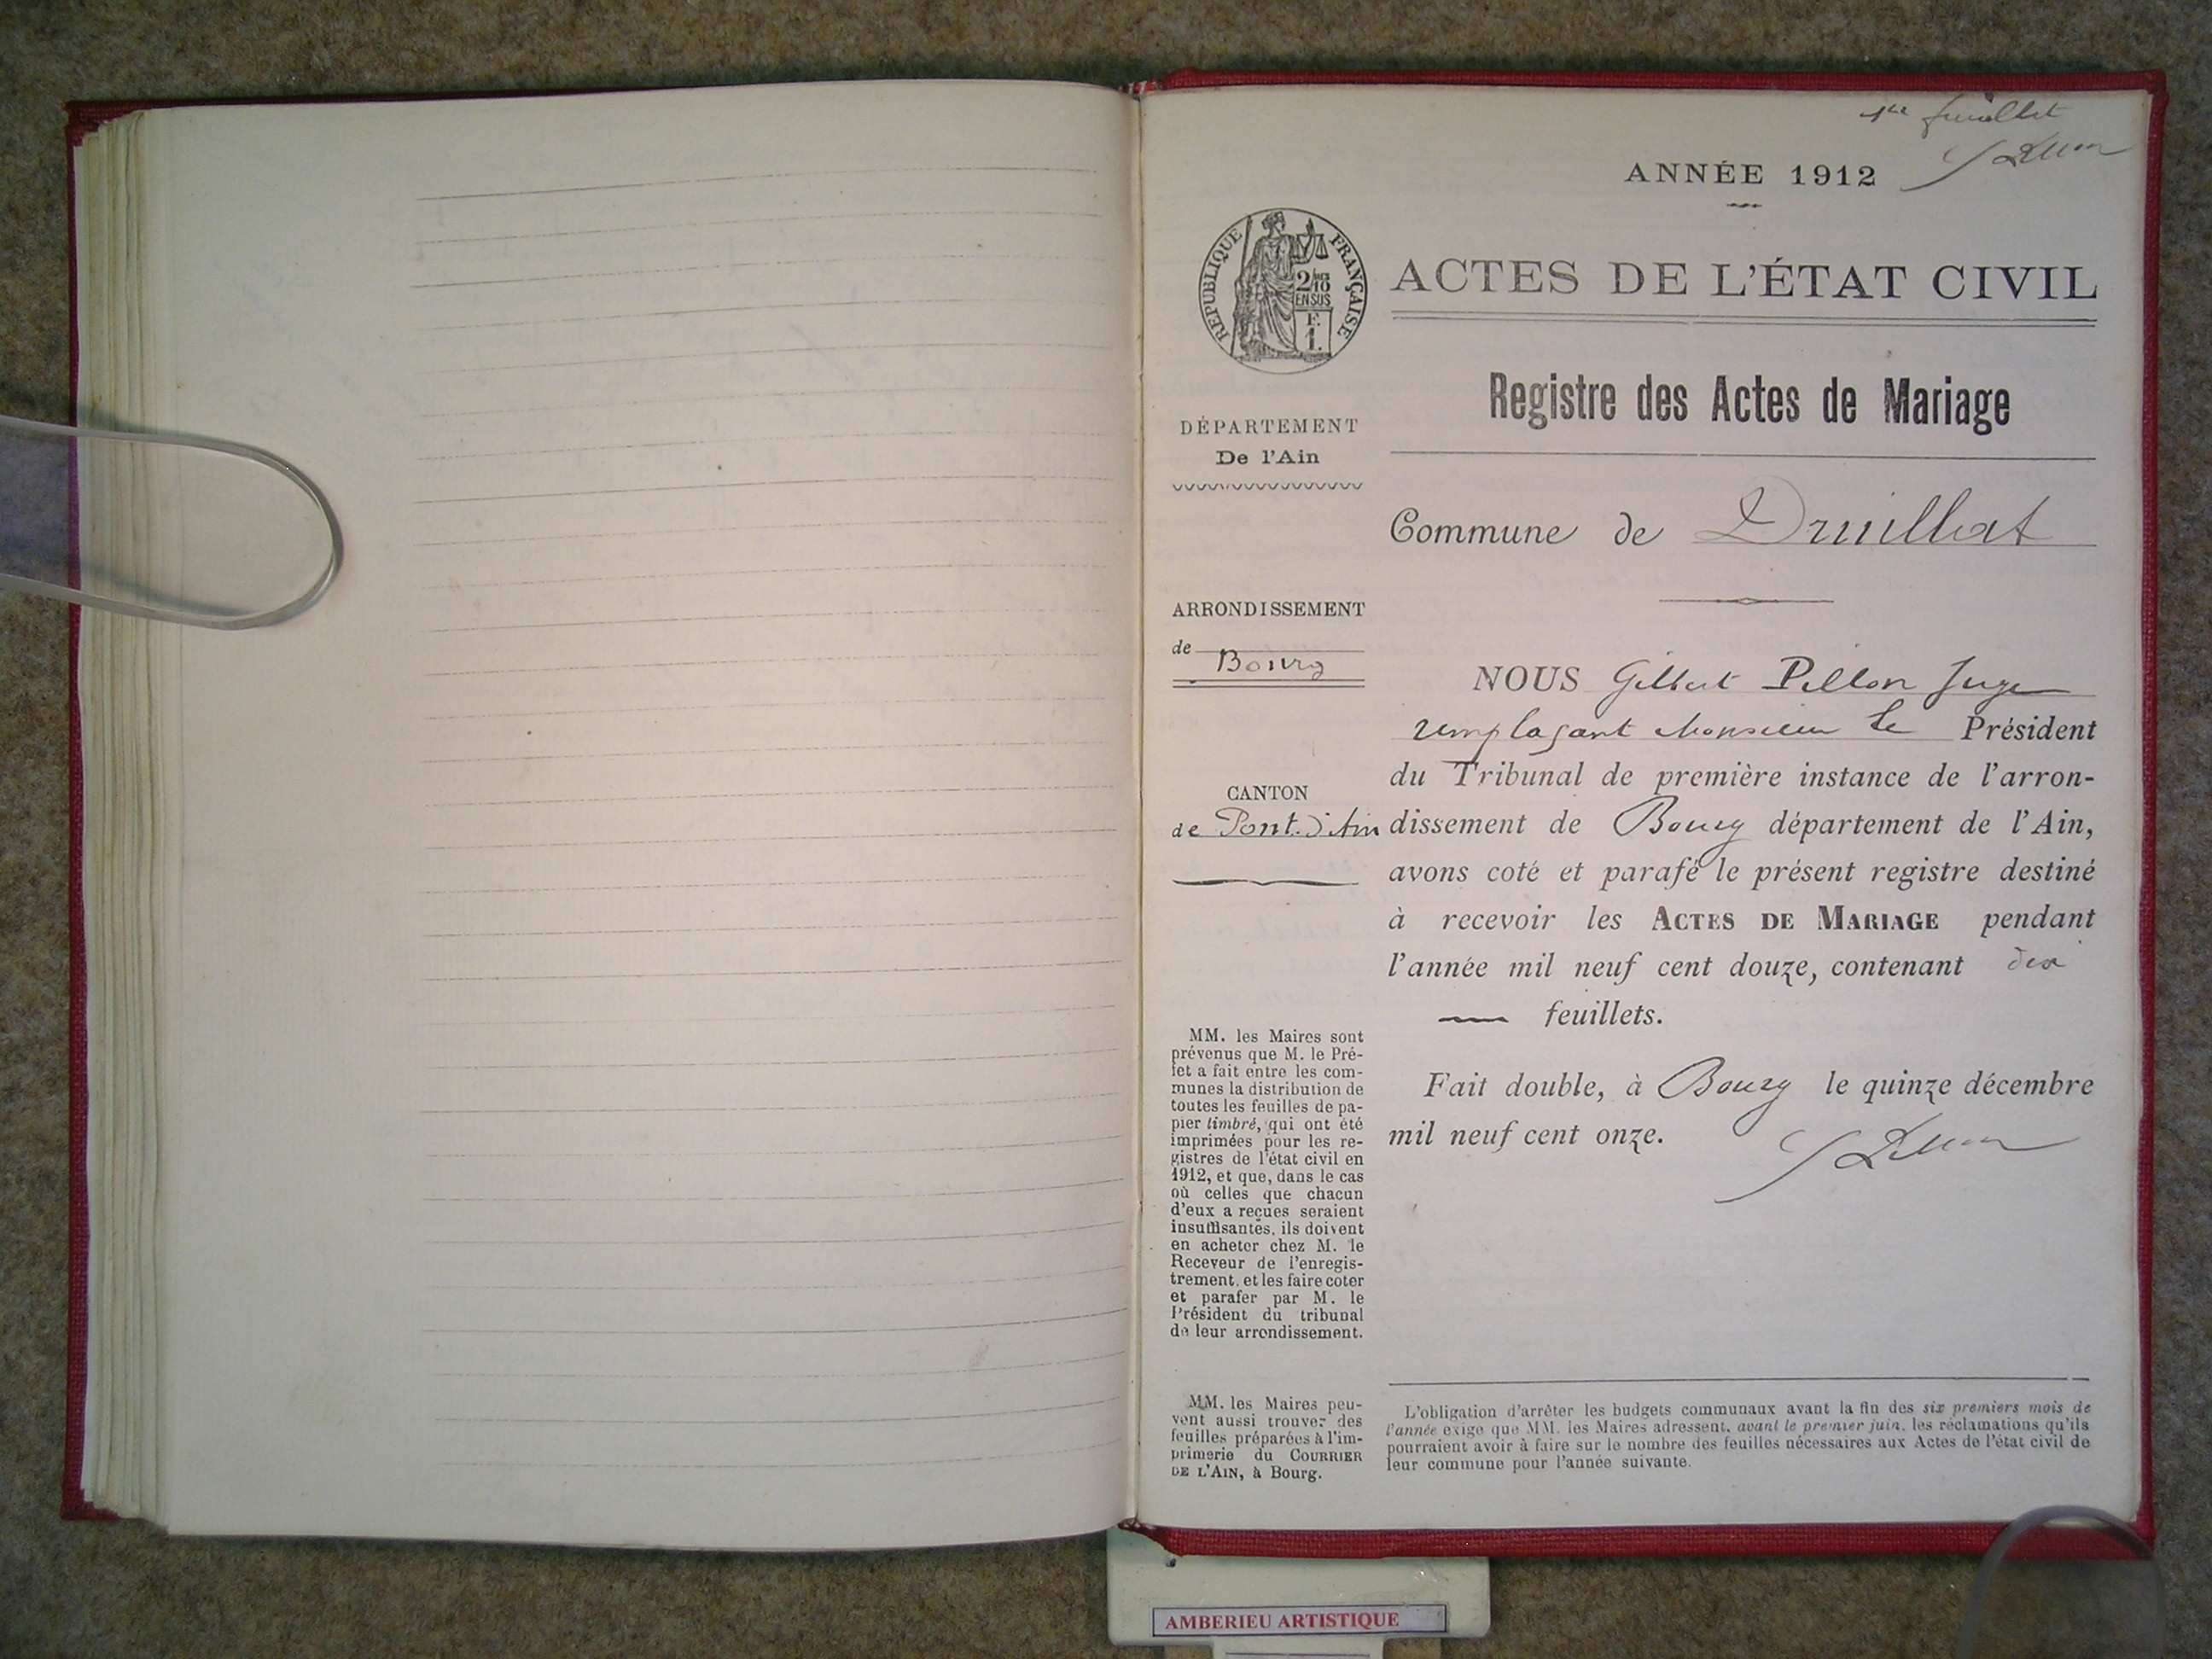 1er feuillet
ANNÉE 1912
RÉPUBLIQUE FRANÇAISE
2/10
EN SUS
F.
1.
ACTES DE L'ÉTAT CIVIL
Registre des Actes de Mariage
DÉPARTEMENT
De l'Ain
Commune de Druillat
ARRONDISSEMENT
de Bourg
CANTON
de Pont-d'Ain
NOUS Gilbert Pillon Juge
remplaçant Monsieur le Président
du Tribunal de première instance de l'arron-
dissement de Bourg département de l'Ain,
avons coté et parafé le présent registre destiné
à recevoir les ACTES DE MARIAGE pendant
l'année mil neuf cent douze, contenant dix
feuillets.
Fait double, à Bourg le quinze décembre
mil neuf cent onze.
MM. les Maires sont
prévenus que M. le Pré-
fet a fait entre les com-
munes la distribution de
toutes les feuilles de pa-
pier timbré, qui ont été
imprimées pour les re-
gistres de l'état civil en
1912, et que, dans le cas
où celles que chacun
d'eux a reçues seraient
insuffisantes, ils doivent
en acheter chez M. le
Receveur de l'enregis-
trement, et les faire coter
et parafer par M. le
Président du tribunal
de leur arrondissement.
MM. les Maires peu-
vent aussi trouver des
feuilles préparées à l'im-
primerie du COURRIER
DE L'AIN, à Bourg.
L'obligation d'arrêter les budgets communaux avant la fin des six premiers mois de
l'année exige que MM. les Maires adressent, avant le premier juin, les réclamations qu'ils
pourraient avoir à faire sur le nombre des feuilles nécessaires aux Actes de l'état civil de
leur commune pour l'année suivante.
AMBERIEU ARTISTIQUE